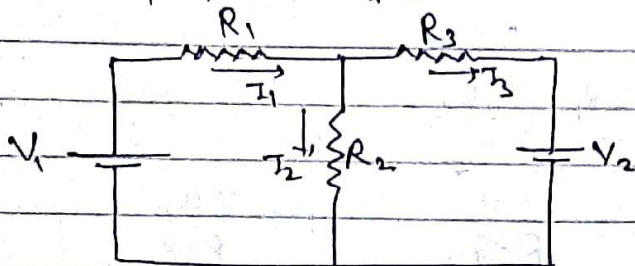 R₁ R₃
I₁ I₃
V₁ I₂ R₂ V₂